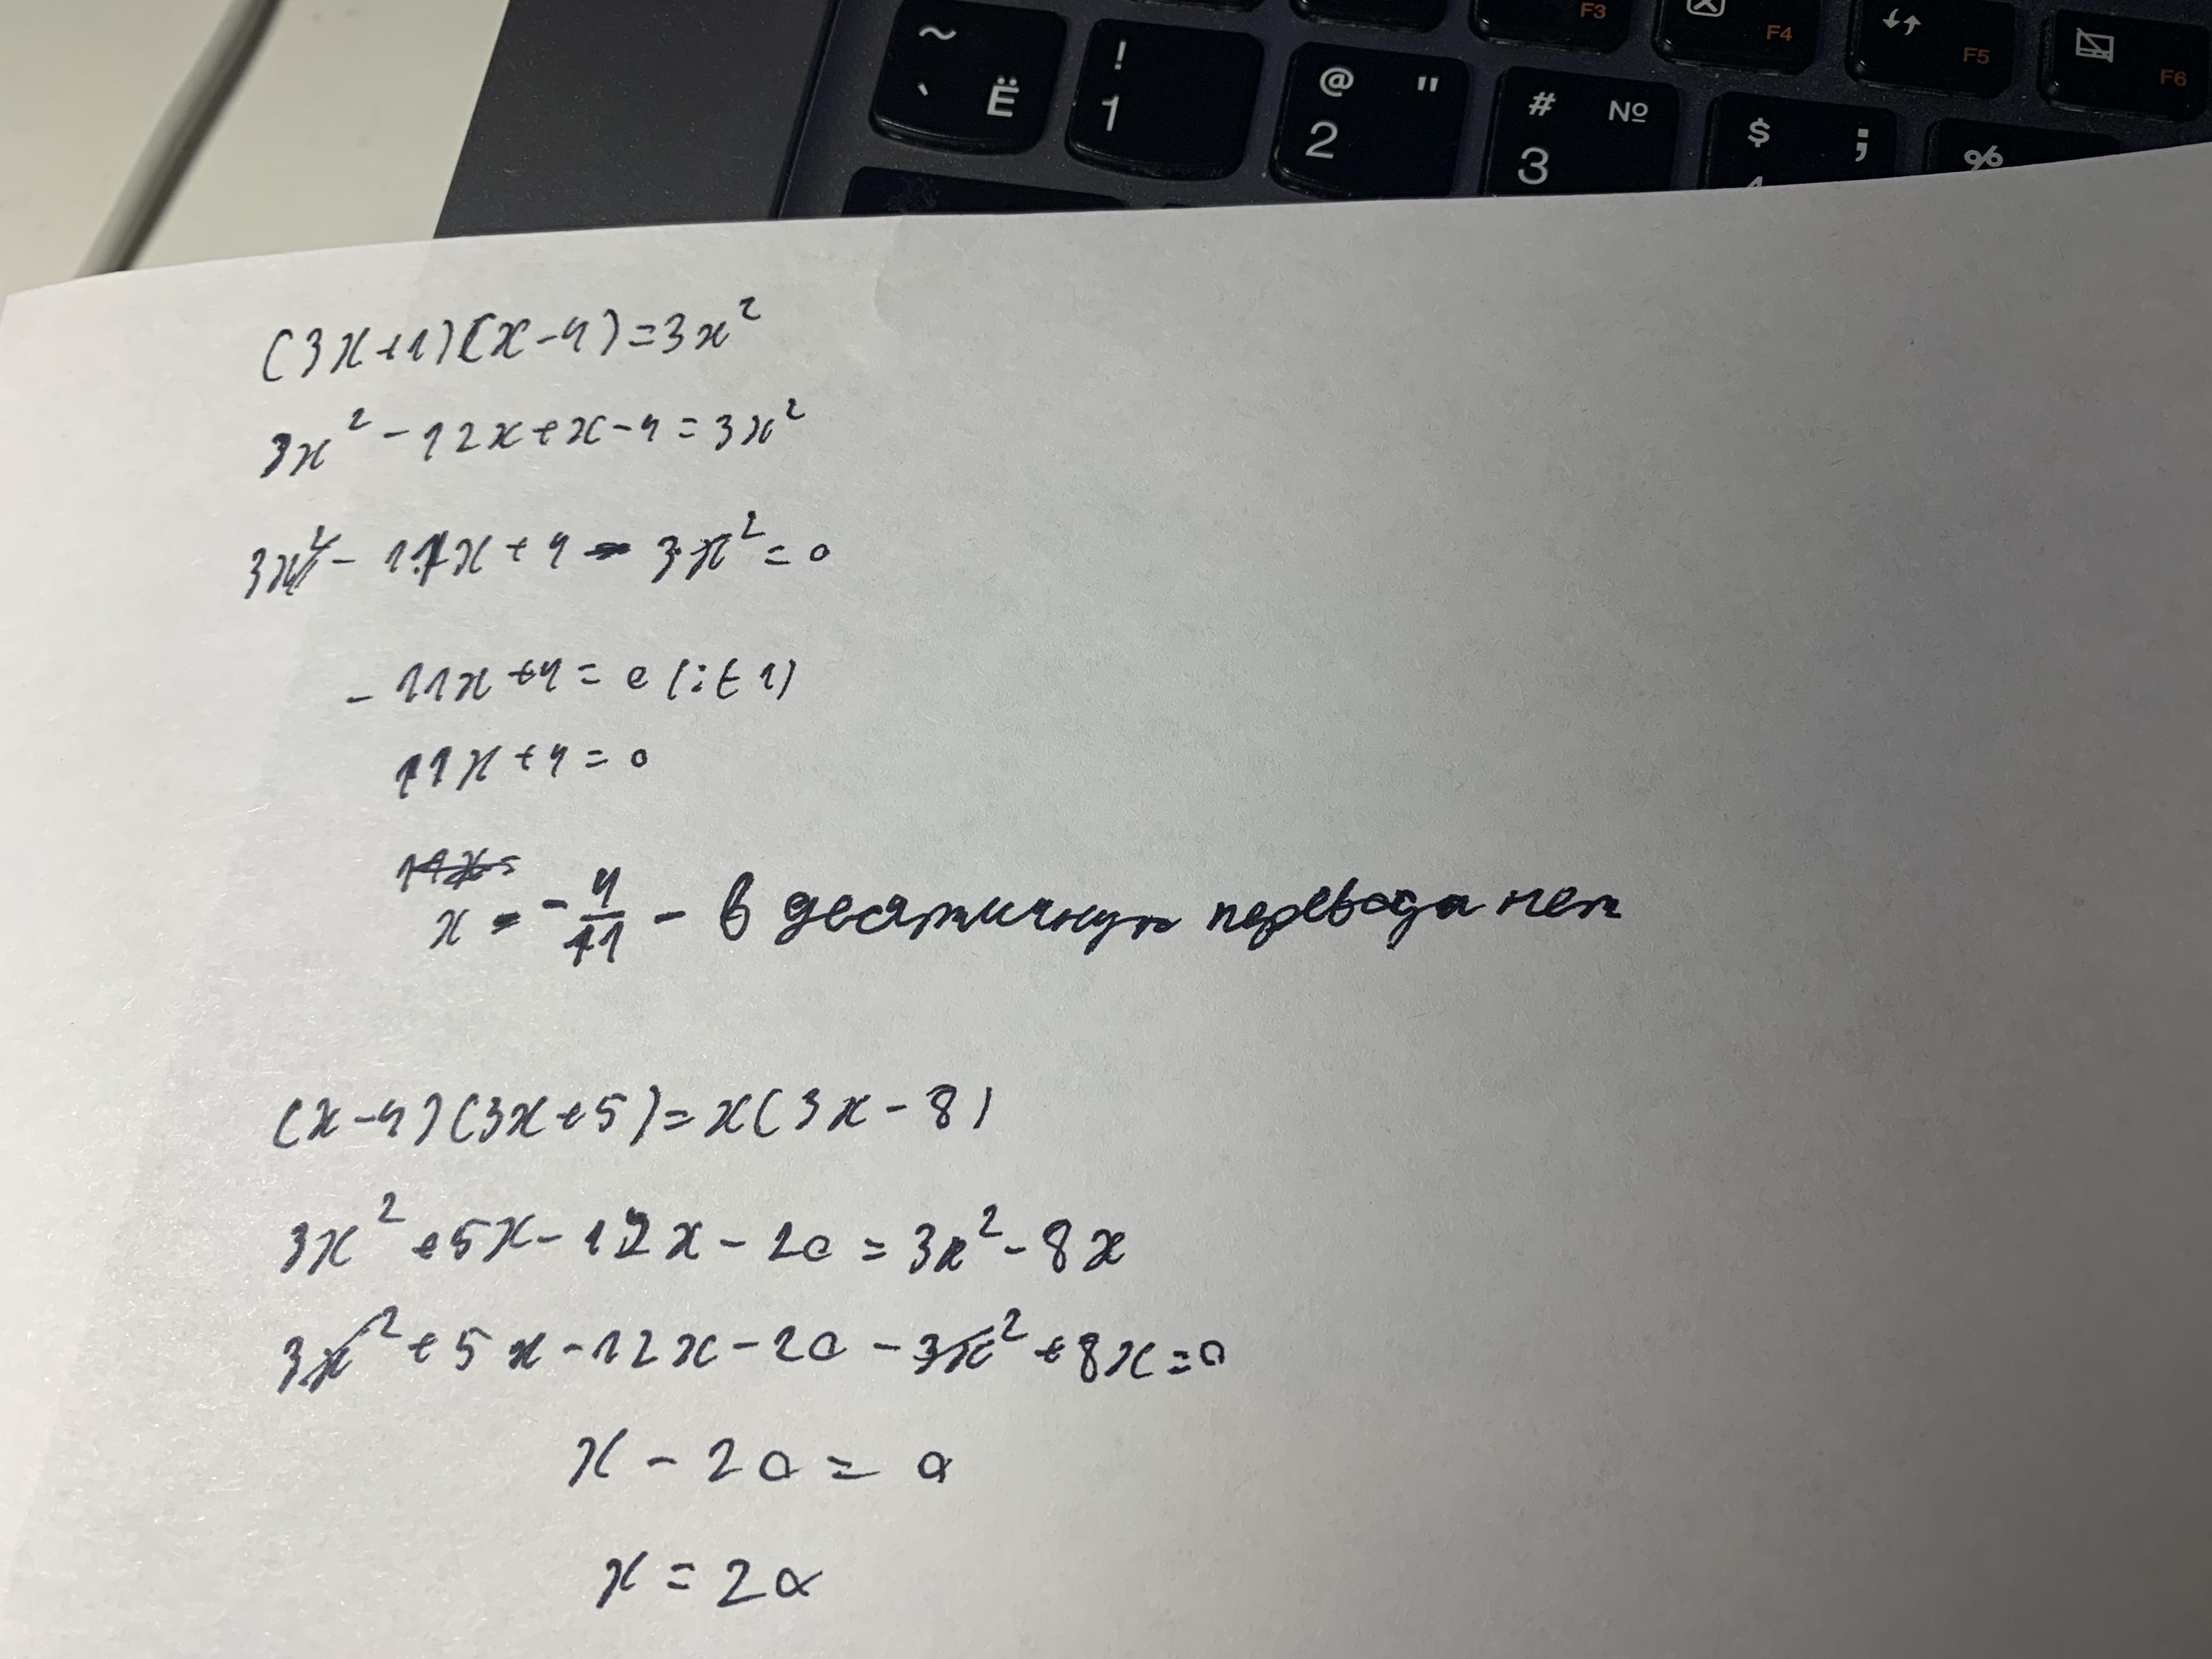 F3 F4 F5 F6
~ ` Ё ! 1 @ " 2 # № 3 $ ; %
(3x+1)(x-4)=3x²
3x²-12x+x-4=3x²
3x²- 11x+4 - 3x²=0
- 11x+4=0 (:(-1)
11x+4=0
11x=
x = -4/11 - в десятичную перевода нет
(x-4)(3x+5)=x(3x-8)
3x²+5x-12x-20=3x²-8x
3x²+5x-12x-20-3x²+8x=0
x-20=0
x=20